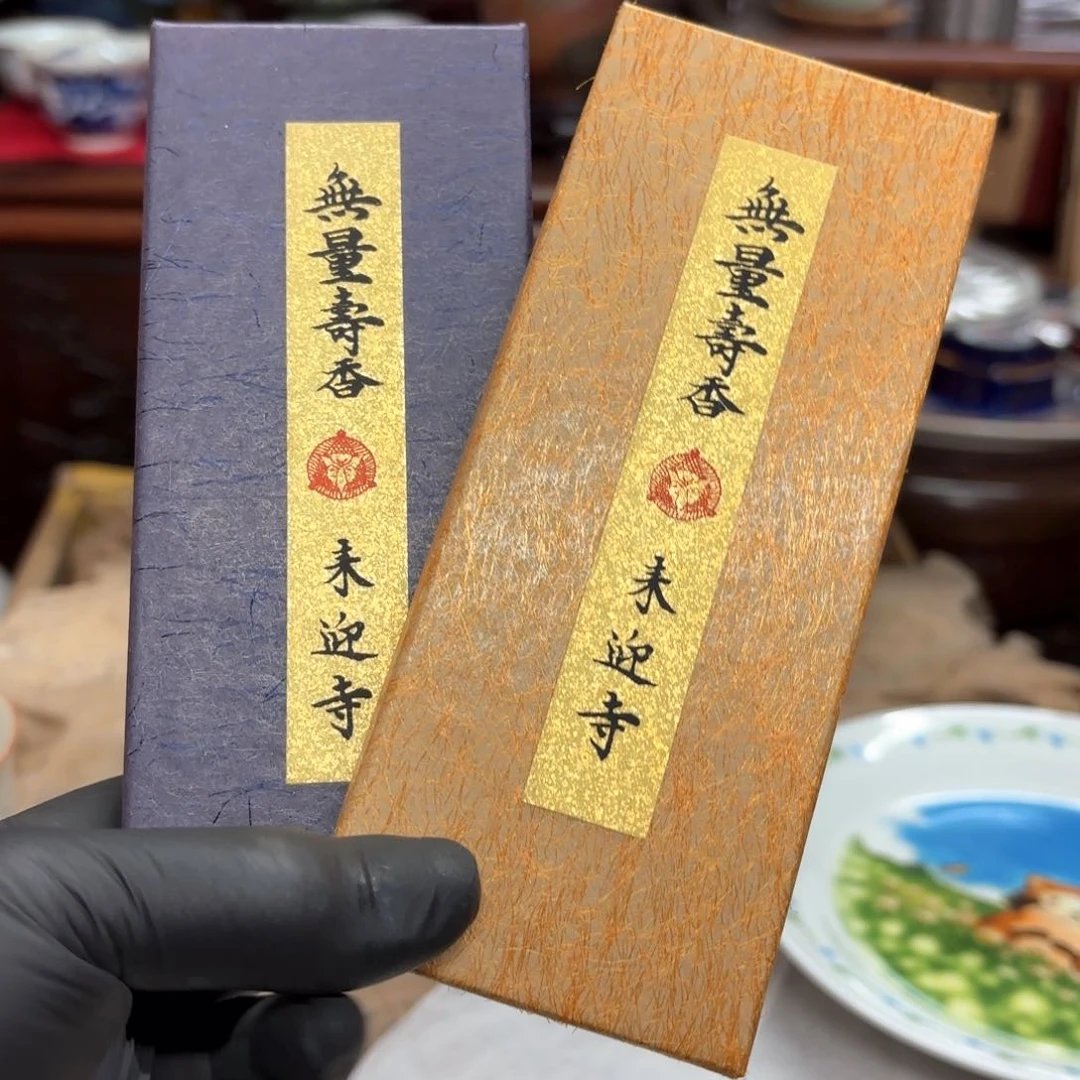 無量壽香
来迎寺
無量壽香
来迎寺